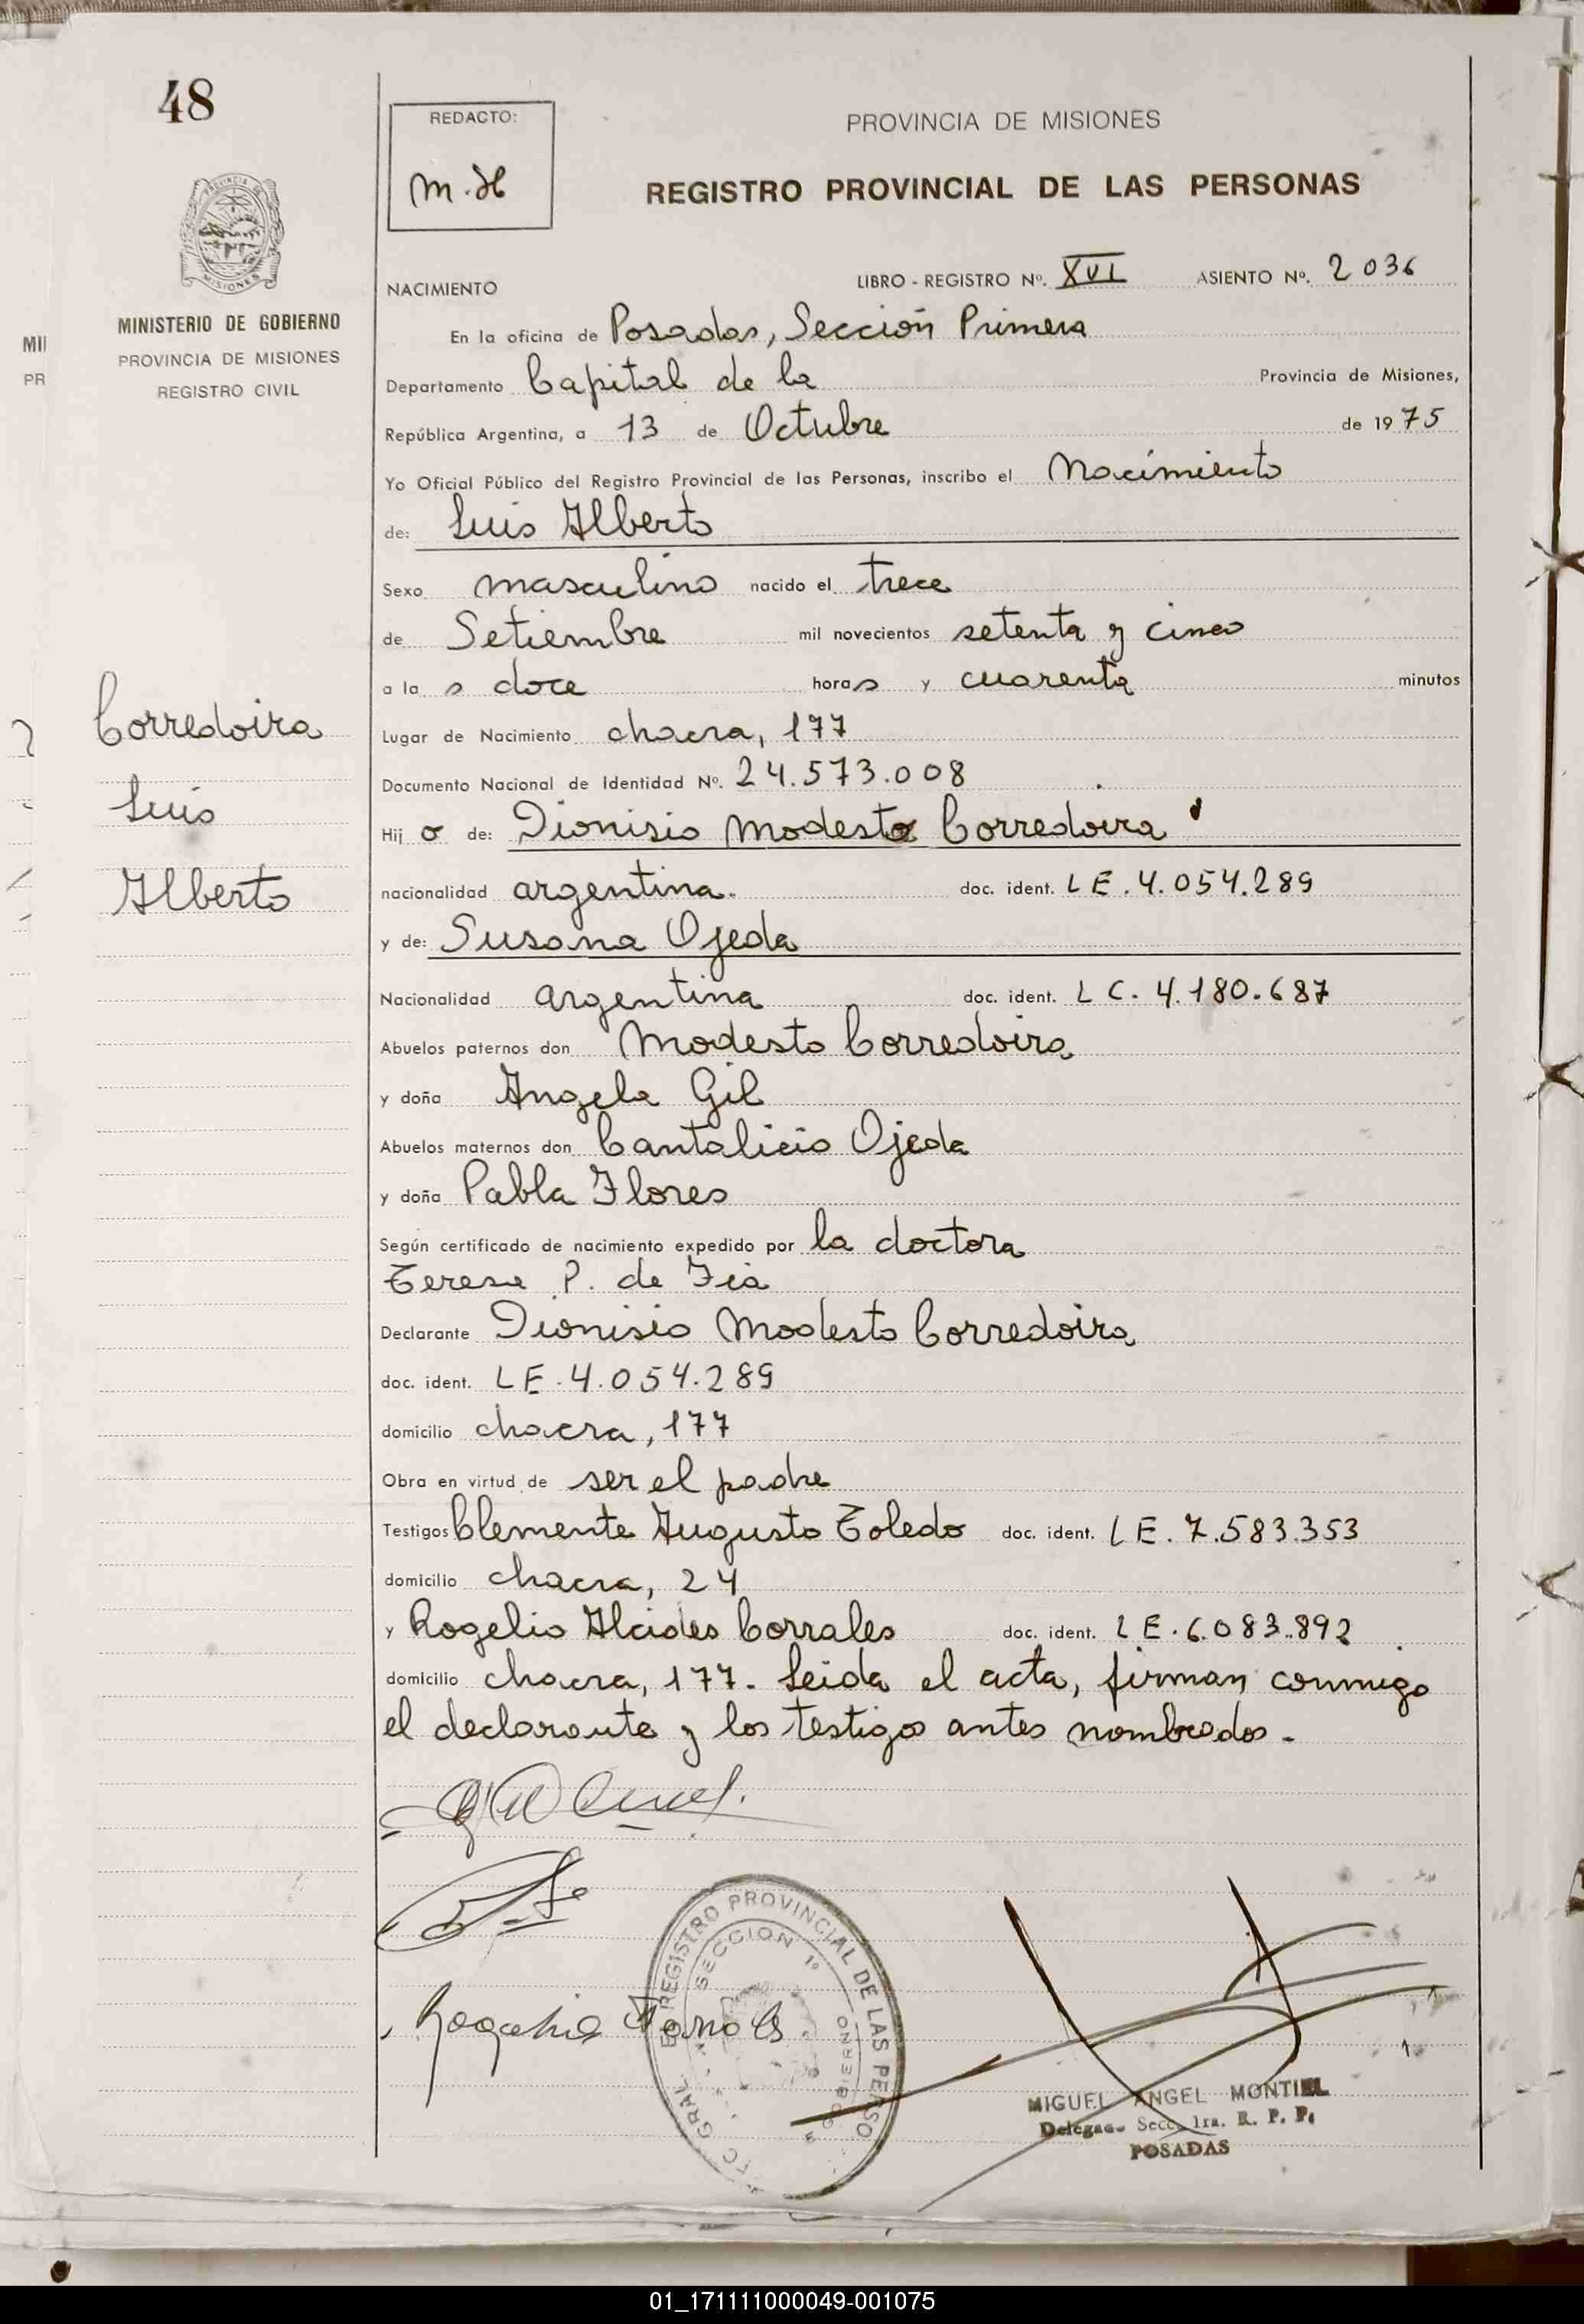 48
MINISTERIO DE GOBIERNO
PROVINCIA DE MISIONES
REGISTRO CIVIL
MII
PR
Corredoira
Luis
Alberto
REDACTO:
M.H
PROVINCIA DE MISIONES
REGISTRO PROVINCIAL DE LAS PERSONAS
NACIMIENTO LIBRO - REGISTRO Nº. XVI ASIENTO Nº. 2036
En la oficina de Posadas, Sección Primera
Departamento Capital de la Provincia de Misiones,
República Argentina, a 13 de Octubre de 1975
Yo Oficial Público del Registro Provincial de las Personas, inscribo el Nacimiento
de: Luis Alberto
Sexo masculino nacido el trece
de Setiembre mil novecientos setenta y cinco
a la s doce horas y cuarenta minutos
Lugar de Nacimiento chacra, 177
Documento Nacional de Identidad Nº. 24.573.008
Hij o de: Dionisio Modesto Corredoira
nacionalidad argentina. doc. ident. LE.4.054.289
y de: Susana Ojeda
Nacionalidad argentina doc. ident. LC.4.180.687
Abuelos paternos don Modesto Corredoira
y doña Angela Gil
Abuelos maternos don Cantalicio Ojeda
y doña Pabla Flores
Según certificado de nacimiento expedido por la doctora
Teresa P. de
Declarante Dionisio Modesto Corredoira
doc. ident. LE.4.054.289
domicilio chacra, 177
Obra en virtud de ser el padre
Testigos Clemente Augusto Toledo doc. ident. LE.7.583.353
domicilio chacra, 24
y Rogelio Alcides Corrales doc. ident. LE.6.083.892
domicilio chacra, 177. Leida el acta, firman conmigo
el declarante y los testigos antes nombrados.
REGISTRO PROVINCIAL DE LAS PERSO
SECCION 1º
GRAL
GOBIERNO
MIGUEL ANGEL MONTIEL
Delegado Secc. 1ra. R. P. P.
POSADAS
01_171111000049-001075